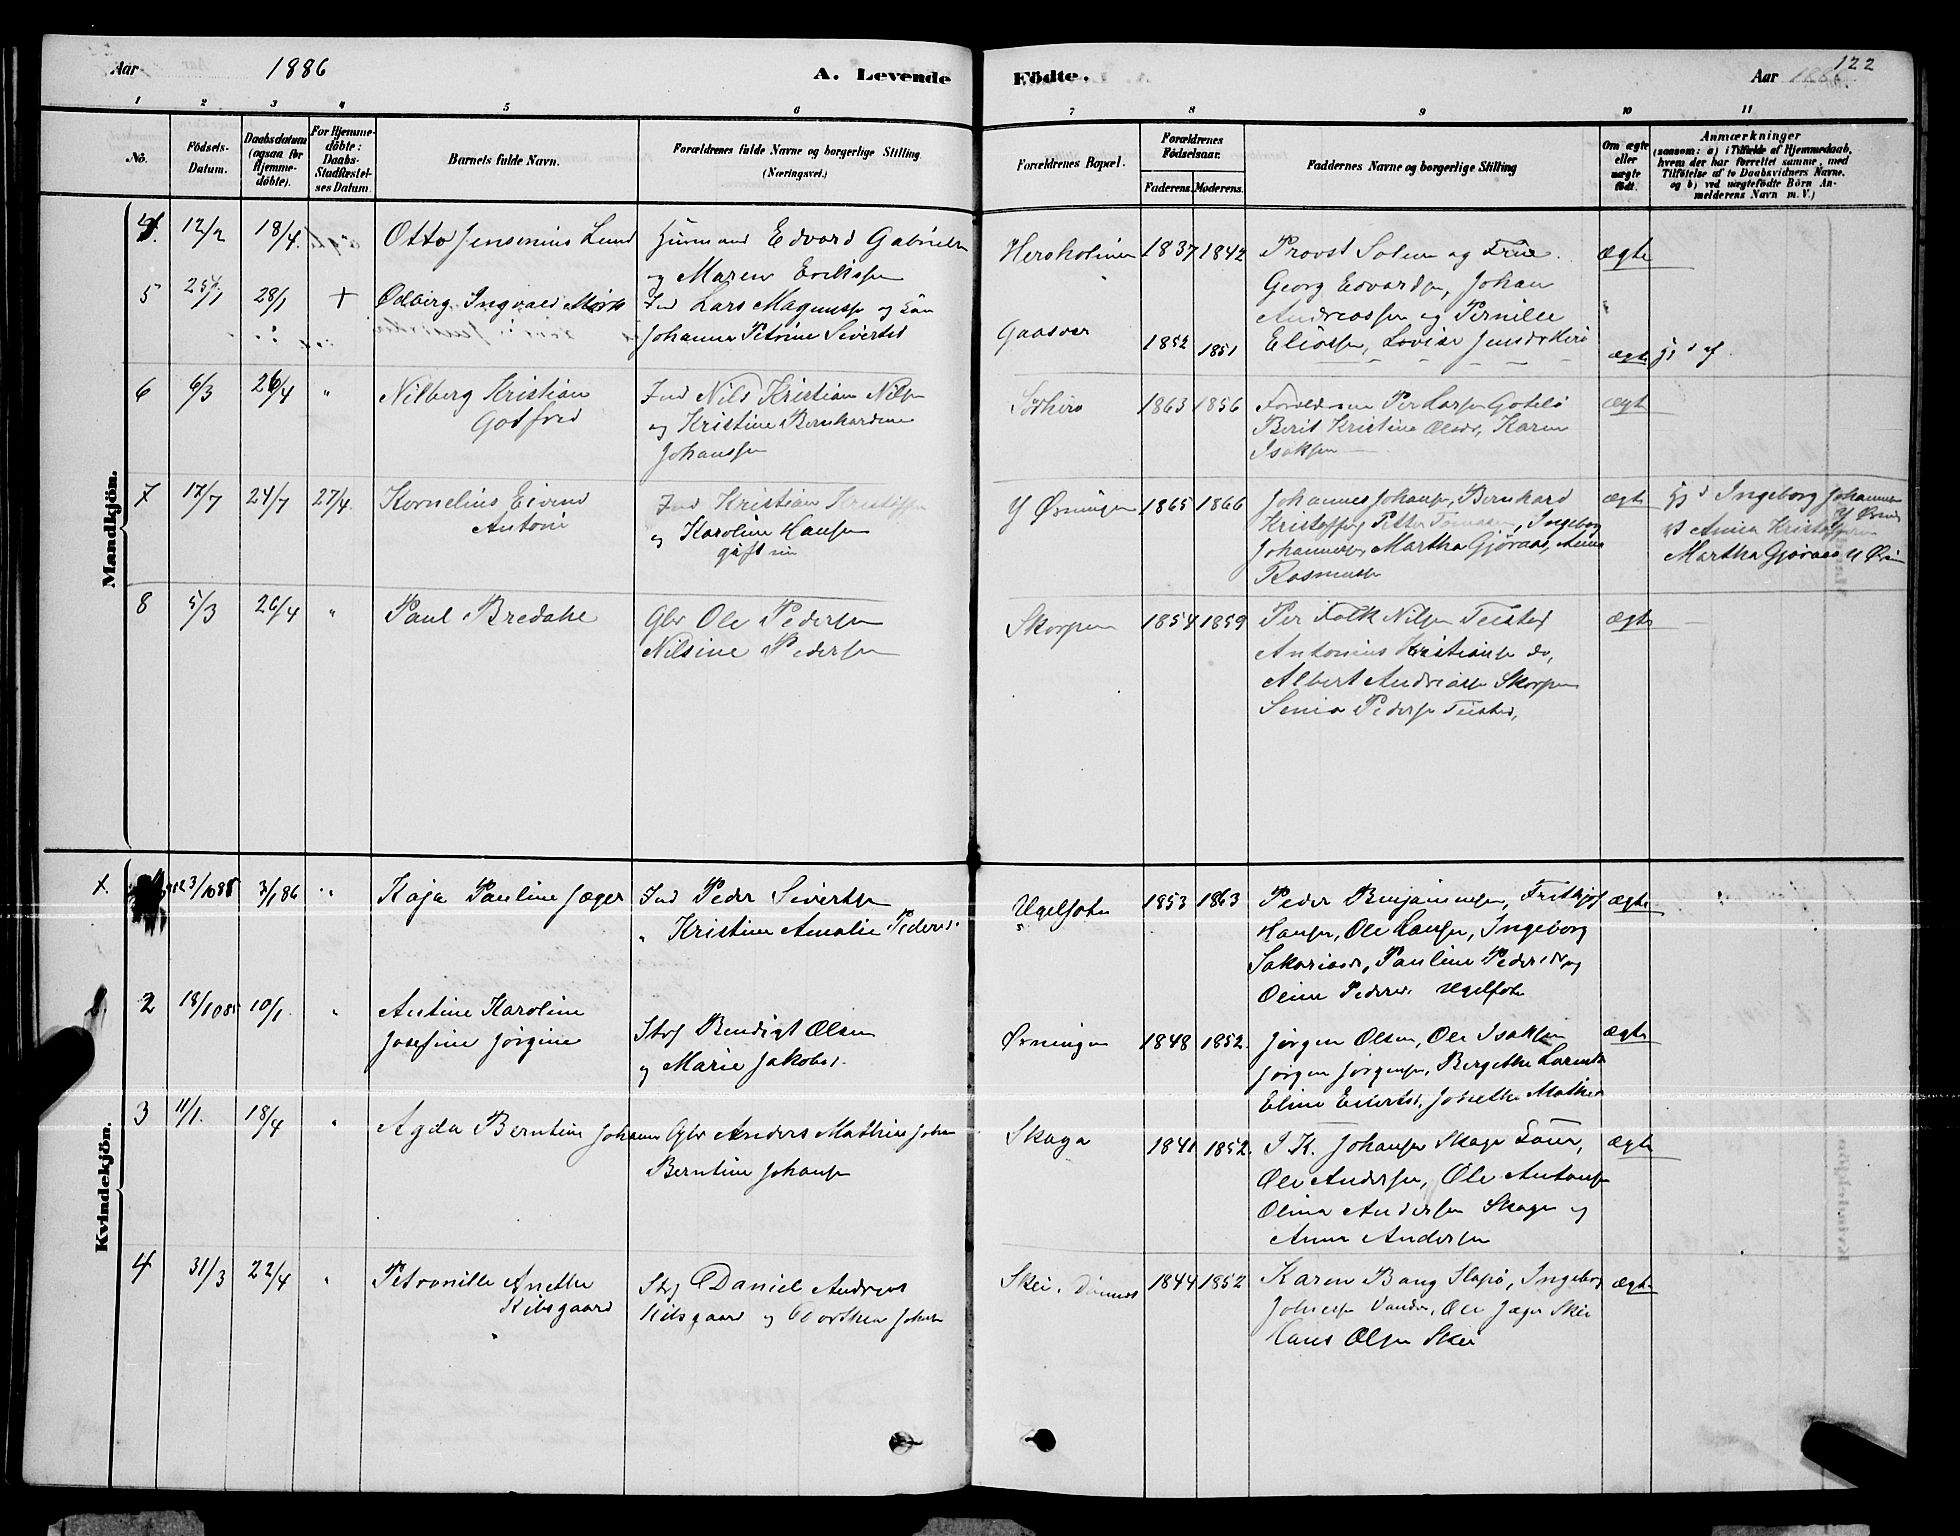 Aar 1886 A. Levende
Födte. Aar 1886. 122
1 2 3 4 5 6 7 8 9 10 11
Nô.
Födsels-
Datum.
Daabsdatum
(ogsaa for
Hjemme-
döbte).
For Hjemme-
döbte:
Daabs-
Stadfæstel-
ses Datum.
Barnets fulde Navn.
Forældrenes fulde Navne og borgerlige Stilling
(Næringsvei.)
Forældrenes Bopæl.
Forældrenes
Födselsaar.
Faderens. Moderens.
Faddernes Navne og borgerlige Stilling
Om ægte
eller
uægte
födt.
Anmærkninger
(saasom: a) i Tilfælde af Hjemmedaab,
hvem der har forrettet samme, med
Tilföielse af to Daabsvidners Navne,
og b) ved uægtefödte Börn An-
melderens Navn m. V.)
Mandkjön.
4 12/2 18/4. Otto Jensenius Lund Huusmand Edvard Gabrielsen
og Maren Eriksen
Hersholmen 1837 1842 Provst Solem og Frue.
Georg Edvardsen, Johan
Andreassen og Pernille
Eliassen, Lovise Jensdr Herø
Ægte
5 25/1 28/1 + Ødberg Ingvald Mørk Ind Lars Magnussen og
Johanna Petrine Sivertsd
Gaasvær 1852 1851 ægte
6 6/3 26/4 " Nilberg Kristian
Gotfred
Ind Nils Kristian Nilsen
og Kristine Bernhardine
Johanssen
Sørherø 1863 1856 Forældrene Per Larsen
Berit Kristine Olsdr, Karen
Isaksen
ægte
7 17/7 24/7 27/4. Kornelius Eivind
Antoni
Ind Kristian Kristoffersen
og Karoline Hansen
gift
Y Ørningen 1865 1866 Johannes Johansen, Bernhard
Kristoffersen, Petter Tomassen, Ingeborg
Johannesen, Martha Gjøraas, Anna
Rasmussen
ægte Ingeborg Johannesen
Y Ørning
Anna Kristoffersen
Martha Gjøraas Y Ørn
8 5/3 26/4 " Paul Bredahl Gbr Ole Pedersen
Nilsine Pedersen
Skorpen 1854 1859 Per Falk Nilsen Teisted
Antonius Kristiansen do,
Albert Andreassen Skorpen
Senia Pedersen Teisted,
ægte
Kvindekjön.
3/10 85 3/1 86 " Kaja Pauline Jæger Ind Peder Sivertsen
" Kristine Amalie Pedersd.
Ugelfoten 1853 1863 Peder Benjaminsen, Frithjof
Hansen, Ole Hansen, Ingeborg
Sakariasdr, Pauline Pedersdr og
Oline Pedersd. Ugelfoten
ægte
2 18/10 85 10/1. " Antine Karoline
Josefine Jørgine
Strf Bendigt Olsen
og Marie Jakobsd.
Ørningen 1848 1852. Jørgen Olsen, Ole Isaksen
Jørgen Jørgensen, Bergethe Larsen
Eline Eilertsd, Jonette Mathis
Ægte
3 11/1. 18/4 " Agda Berntine Johanna Gbr Anders Mathias Johan
Berntine Johansen
Skaga 1841 1852. I K. Johansen Skaga
Ole Andersen, Ole Antonsen
Olina Andersen Skaga og
Anna Andersen
ægte
4 31/3 22/4 " Petronille Anetha
Kibsgaard
Strf Daniel Andreas
Kibsgaard og Dorthea Johnsen
Skei, Dønnes 1844 1852 Karen Bang Slapø, Ingeborg
Johnsen Vandve, Ole Jæger Skei
Hans Olsen Skei
ægte